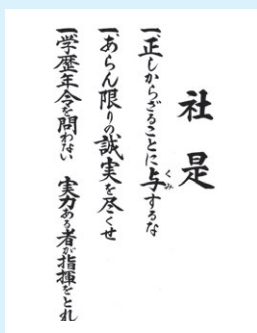 社是
一、正しからざることに与するな
くみ
一、あらん限りの誠実を尽くせ
一、学歴年令を問わない 実力ある者が指揮をとれ